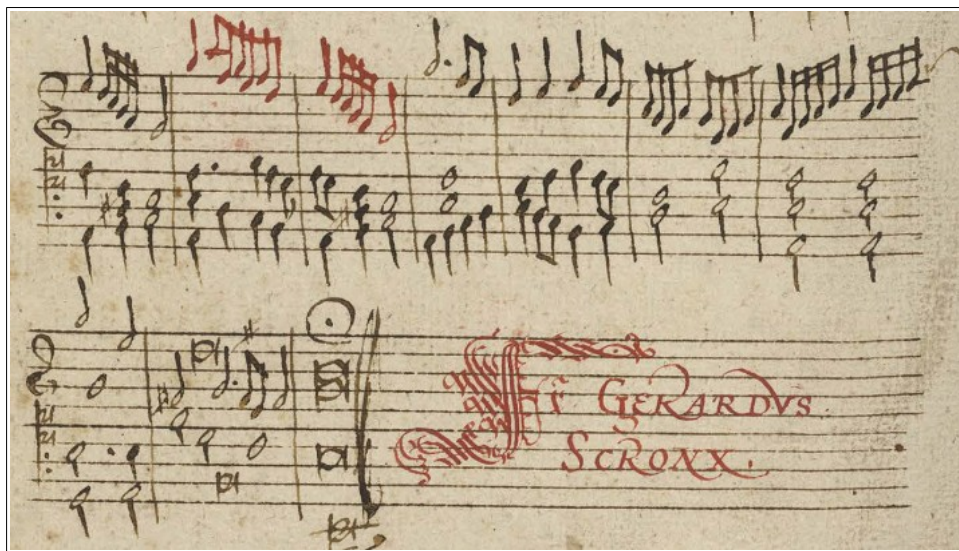 Fr GERARDVS
SCRONX.